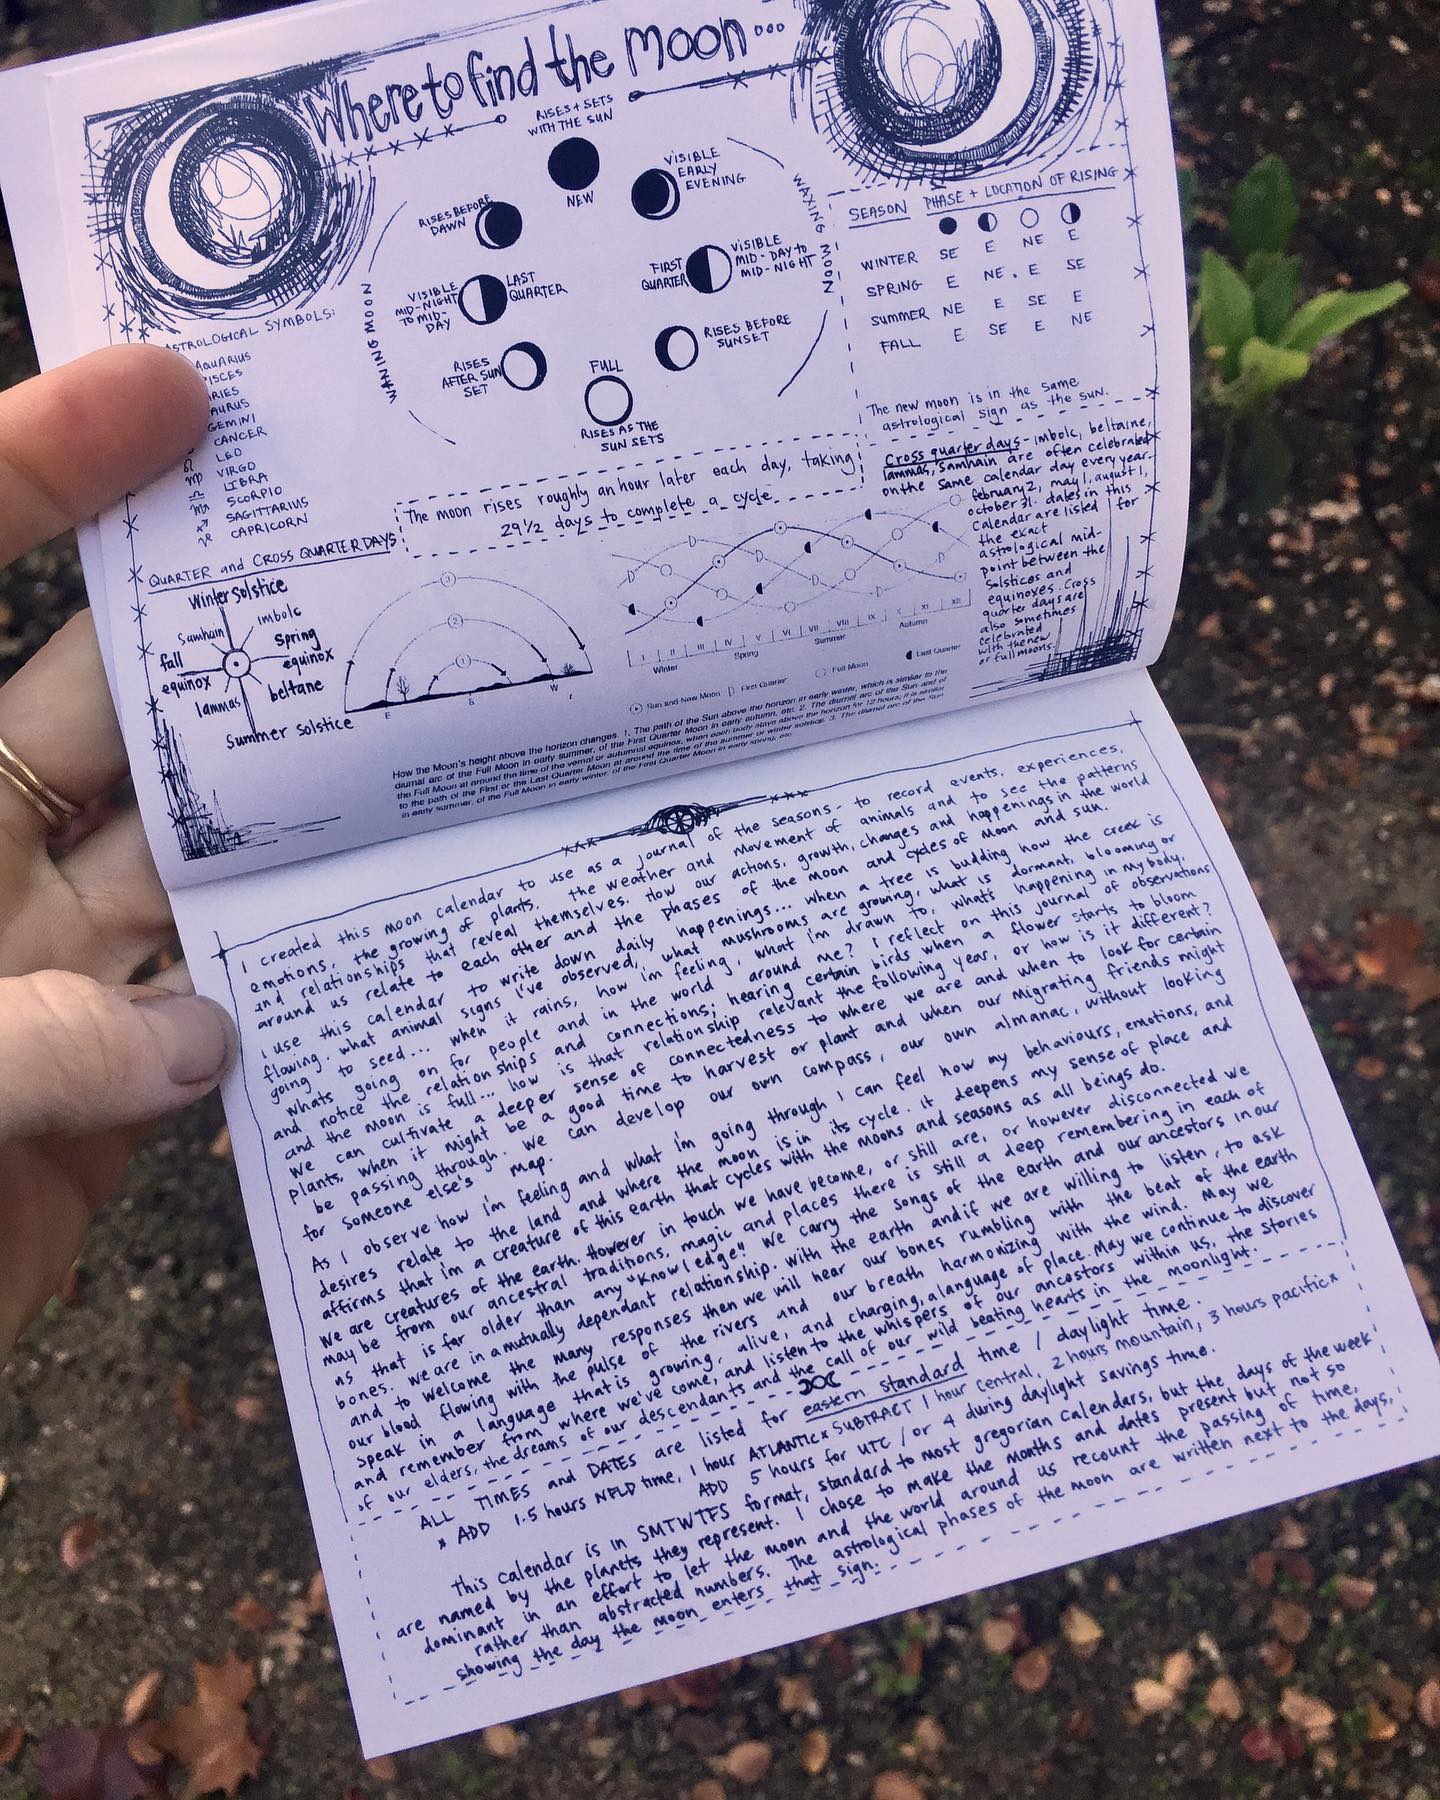 Where to find the moon...
RISES + SETS
WITH THE SUN
NEW
VISIBLE
EARLY
EVENING
WAXING MOON
FIRST
QUARTER
VISIBLE
MID-DAY TO
MID-NIGHT
RISES BEFORE
SUNSET
FULL
RISES AS THE
SUN SETS
RISES
AFTER SUN
SET
LAST
QUARTER
VISIBLE
MID-NIGHT
TO MID-
DAY
WANING MOON
RISES BEFORE
DAWN
SEASON PHASE + LOCATION OF RISING
WINTER SE E NE E
SPRING E NE E SE
SUMMER NE E SE E
FALL E SE E NE
The new moon is in the same
astrological sign as the sun.
ASTROLOGICAL SYMBOLS:
AQUARIUS
PISCES
ARIES
TAURUS
GEMINI
CANCER
LEO
♍ VIRGO
♎ LIBRA
♏ SCORPIO
♐ SAGITTARIUS
♑ CAPRICORN
The moon rises roughly an hour later each day, taking
29 1/2 days to complete a cycle
Cross quarter days - imbolc, beltaine,
lammas, samhain are often celebrated
on the same calendar day every year-
february 2, may 1, august 1,
october 31. dates in this
calendar are listed for
the exact
astrological mid-
point between the
solstices and
equinoxes. Cross
quarter days are
also sometimes
celebrated
with the new
or full moons.
QUARTER and CROSS QUARTER DAYS
Winter Solstice
imbolc
Spring
equinox
beltane
Summer solstice
lammas
fall
equinox
Samhain
3
2
1
E S W
I II III IV V VI VII VIII IX X XI XII
Winter Spring Summer Autumn
Sun and New Moon First Quarter Full Moon Last Quarter
How the Moon's height above the horizon changes. 1. The path of the Sun above the horizon in early winter, which is similar to the
diurnal arc of the Full Moon in early summer, of the First Quarter Moon in early autumn, etc. 2. The diurnal arc of the Sun and of
the Full Moon at around the time of the vernal or autumnal equinox, when each body stays above the horizon for 12 hours; it is similar
to the path of the First or the Last Quarter Moon at around the time of the summer or winter solstice. 3. The diurnal arc of the Sun
in early summer, of the Full Moon in early winter, of the First Quarter Moon in early spring, etc.
I created this moon calendar to use as a journal of the seasons - to record events, experiences,
emotions, the growing of plants, the weather and movement of animals and to see the patterns
and relationships that reveal themselves. How our actions, growth, changes and happenings in the world
around us relate to each other and the phases of the moon and cycles of moon and sun.
I use this calendar to write down daily happenings... when a tree is budding how the creek is
flowing. what animal signs I've observed, what mushrooms are growing, what is dormant, blooming or
going to seed... when it rains, how i'm feeling, what i'm drawn to, what's happening in my body.
whats going on for people and in the world around me? I reflect on this journal of observations
and notice the relationships and connections; hearing certain birds when a flower starts to bloom
and the moon is full... how is that relationship relevant the following year, or how is it different?
We can cultivate a deeper sense of connectedness to where we are and when to look for certain
plants, when it might be a good time to harvest or plant and when our migrating friends might
be passing through. We can develop our own compass, our own almanac, without looking
for someone else's map.
As I observe how i'm feeling and what i'm going through I can feel how my behaviours, emotions, and
desires relate to the land and where the moon is in its cycle. it deepens my sense of place and
affirms that i'm a creature of this earth that cycles with the moons and seasons as all beings do.
We are creatures of the earth. However in touch we have become, or still are, or however disconnected we
may be from our ancestral traditions, magic and places there is still a deep remembering in each of
us that is far older than any "knowledge". We carry the songs of the earth and our ancestors in our
bones. we are in a mutually dependant relationship. with the earth and if we are willing to listen, to ask
and to welcome the many responses then we will hear our bones rumbling with the beat of the earth
our blood flowing with the pulse of the rivers and our breath harmonizing with the wind. May we
speak in a language that is growing, alive, and charging, a language of place. May we continue to discover
and remember from where we've come, and listen to the whispers of our ancestors within us, the stories
of our elders, the dreams of our descendants and the call of our wild beating hearts in the moonlight.
ALL TIMES and DATES are listed for eastern standard time / daylight time.
* ADD 1.5 hours NFLD time, 1 hour ATLANTIC * SUBTRACT 1 hour central, 2 hours mountain, 3 hours pacific *
ADD 5 hours for UTC / or 4 during daylight savings time.
This calendar is in SMTWTFS format, standard to most gregorian calendars, but the days of the week
are named by the planets they represent. I chose to make the months and dates present but not so
dominant in an effort to let the moon and the world around us recount the passing of time,
rather than abstracted numbers. The astrological phases of the moon are written next to the days,
showing the day the moon enters that sign.